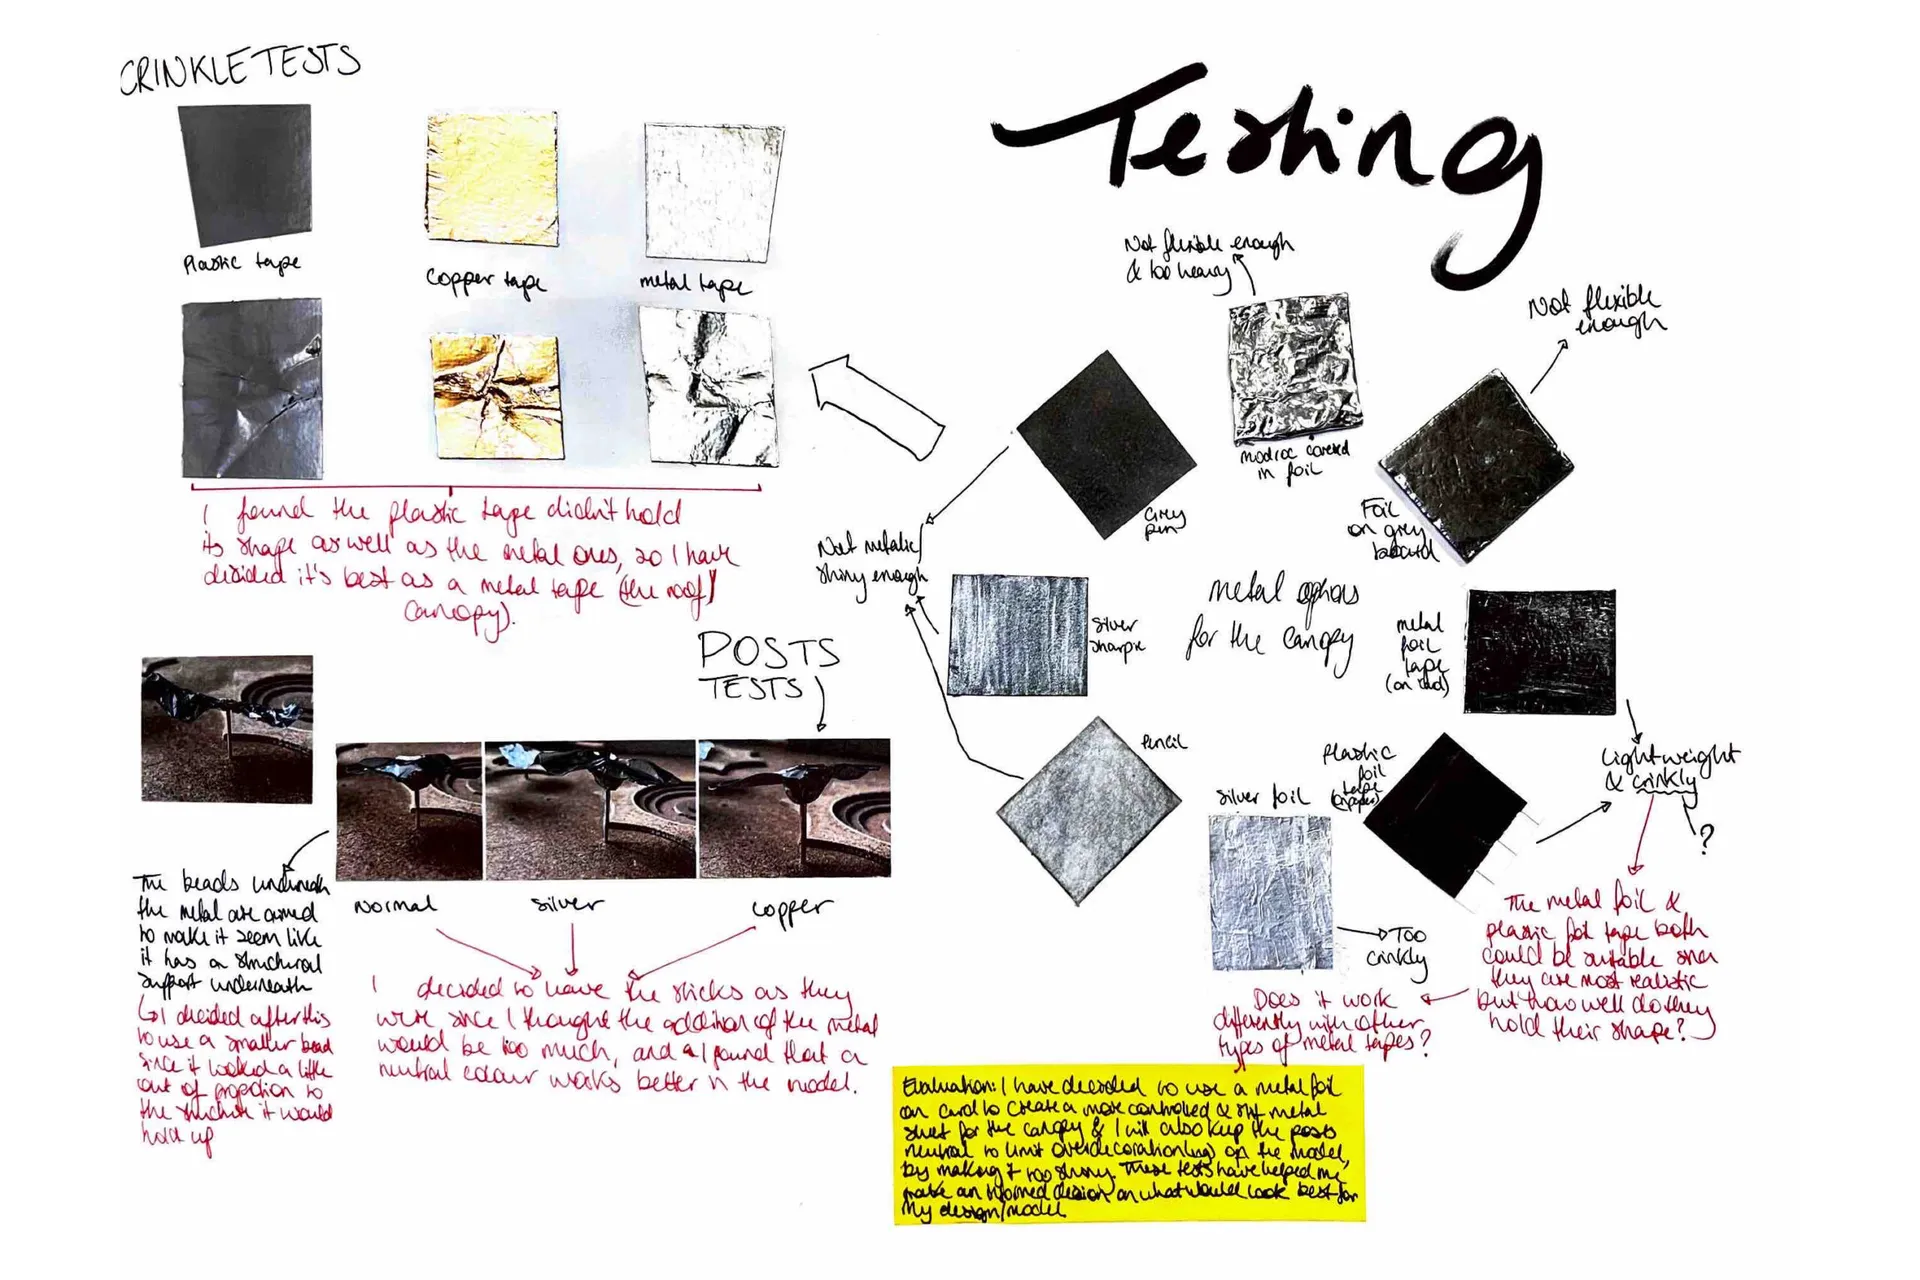 CRINKLE TESTS
Testing
Plastic tape
Copper tape
metal tape
I found the plastic tape didn't hold
its shape as well as the metal ones, so I have
decided it's best as a metal tape (the roof/
canopy).
Not flexible enough
& too heavy
Not flexible
enough
modroc covered
in foil
Grey
pen
Foil
on grey
board
Not metalic/
shiny enough
Silver
sharpie
metal options
for the canopy
metal
foil
tape
(on card)
Pencil
Silver foil
Plastic
foil
tape
(on paper)
Lightweight
& crinkly
?
Too
crinkly
The metal foil &
plastic foil tape both
could be suitable since
they are most realistic
but how well do they
hold their shape?
Does it work
differently with other
types of metal tapes?
POSTS
TESTS
Normal
Silver
Copper
The beads underneath
the metal are aimed
to make it seem like
it has a structural
support underneath
↳ I decided after this
to use a smaller bead
since it looked a little
out of proportion to
the structure it would
hold up
I decided to leave the sticks as they
were since I thought the addition of the metal
would be too much, and I found that a
neutral colour works better in the model.
Evaluation: I have decided to use a metal foil
on card to create a more controlled & stiff metal
sheet for the canopy & I will also keep the posts
neutral to limit overdecorating of the model,
by making it too shiny. These tests have helped me
make an informed decision on what would look best for
my design/model.